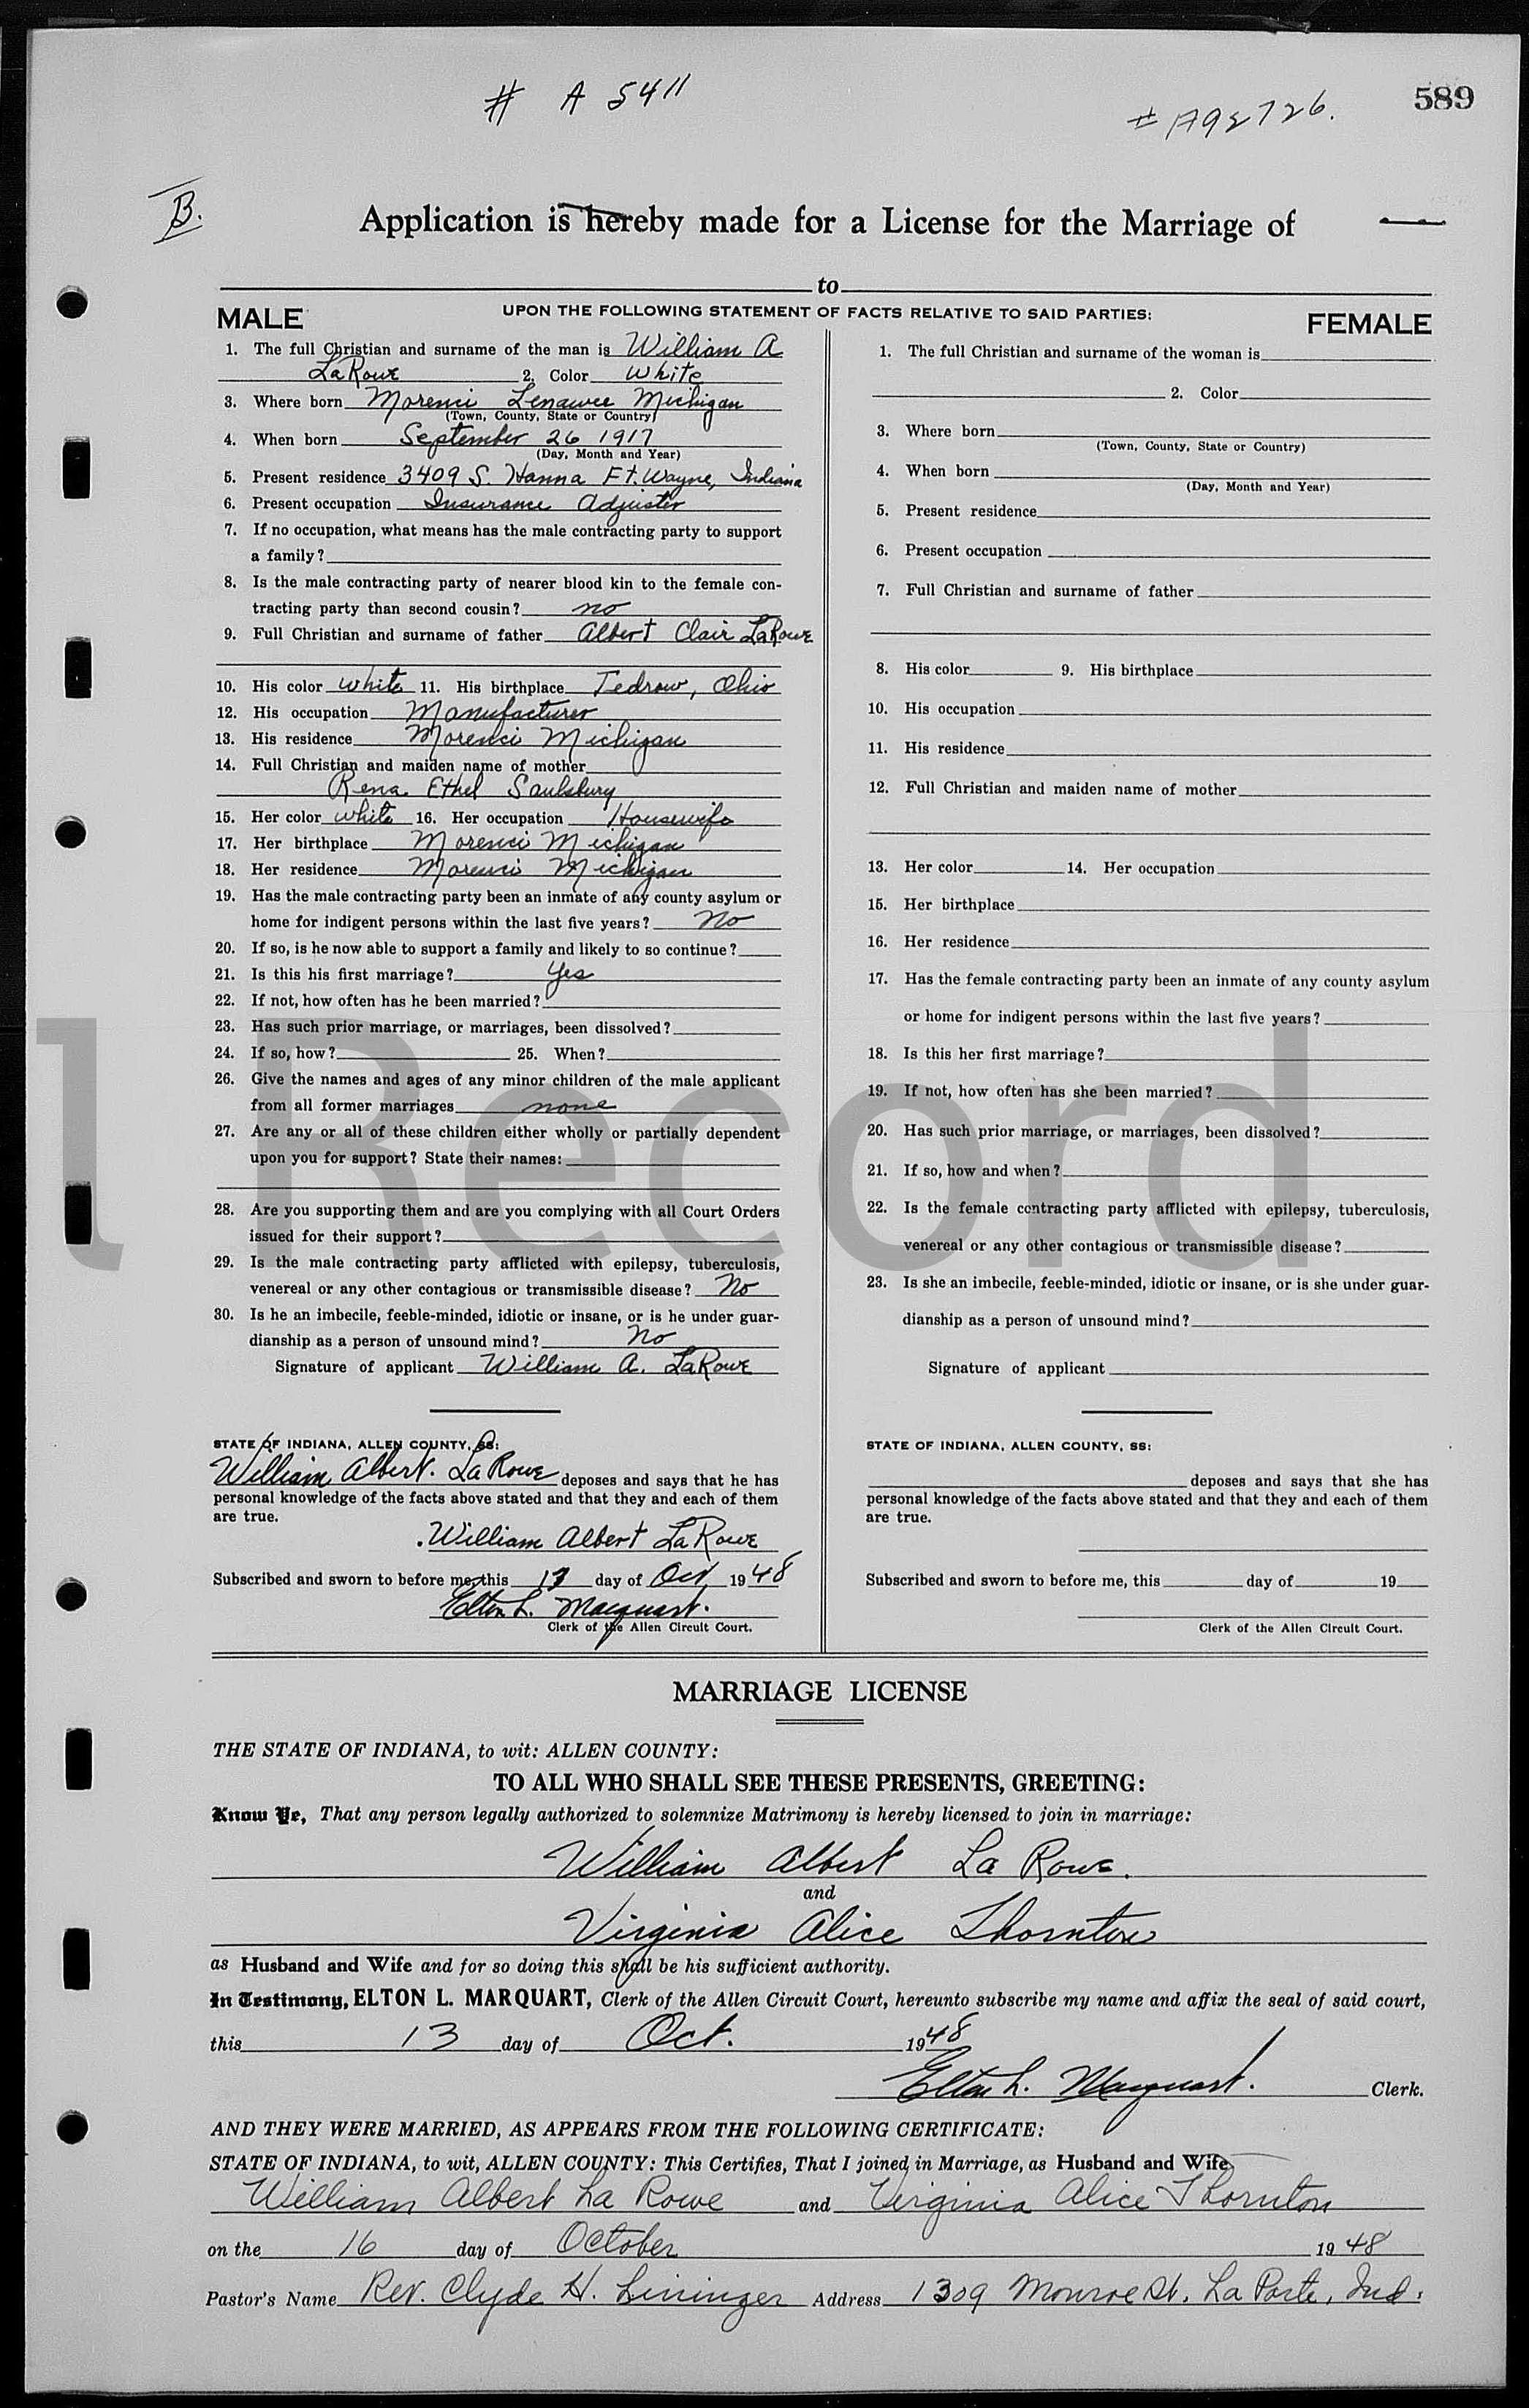 # A 5411
# A92726.
589
B.
Application is hereby made for a License for the Marriage of
to
UPON THE FOLLOWING STATEMENT OF FACTS RELATIVE TO SAID PARTIES:
MALE
1. The full Christian and surname of the man is William A
LaRowe 2. Color White
3. Where born Morenci Lenawee Michigan
(Town, County, State or Country)
4. When born September 26 1917
(Day, Month and Year)
5. Present residence 3409 S. Hanna Ft. Wayne, Indiana
6. Present occupation Insurance Adjuster
7. If no occupation, what means has the male contracting party to support
a family?
8. Is the male contracting party of nearer blood kin to the female con-
tracting party than second cousin? no
9. Full Christian and surname of father Albert Clair LaRowe
10. His color white 11. His birthplace Tedrow, Ohio
12. His occupation Manufacturer
13. His residence Morenci Michigan
14. Full Christian and maiden name of mother
Rena Ethel Saulsbury
15. Her color white 16. Her occupation Housewife
17. Her birthplace Morenci Michigan
18. Her residence Morenci Michigan
19. Has the male contracting party been an inmate of any county asylum or
home for indigent persons within the last five years? No
20. If so, is he now able to support a family and likely to so continue?
21. Is this his first marriage? Yes
22. If not, how often has he been married?
23. Has such prior marriage, or marriages, been dissolved?
24. If so, how? 25. When?
26. Give the names and ages of any minor children of the male applicant
from all former marriages none
27. Are any or all of these children either wholly or partially dependent
upon you for support? State their names:
28. Are you supporting them and are you complying with all Court Orders
issued for their support?
29. Is the male contracting party afflicted with epilepsy, tuberculosis,
venereal or any other contagious or transmissible disease? No
30. Is he an imbecile, feeble-minded, idiotic or insane, or is he under guar-
dianship as a person of unsound mind? No
Signature of applicant William A. LaRowe
STATE OF INDIANA, ALLEN COUNTY, SS:
William Albert. LaRowe deposes and says that he has
personal knowledge of the facts above stated and that they and each of them
are true.
William Albert LaRowe
Subscribed and sworn to before me, this 13 day of Oct 1948
Elton L. Marquart.
Clerk of the Allen Circuit Court.
FEMALE
1. The full Christian and surname of the woman is
2. Color
3. Where born
(Town, County, State or Country)
4. When born
(Day, Month and Year)
5. Present residence
6. Present occupation
7. Full Christian and surname of father
8. His color 9. His birthplace
10. His occupation
11. His residence
12. Full Christian and maiden name of mother
13. Her color 14. Her occupation
15. Her birthplace
16. Her residence
17. Has the female contracting party been an inmate of any county asylum
or home for indigent persons within the last five years?
18. Is this her first marriage?
19. If not, how often has she been married?
20. Has such prior marriage, or marriages, been dissolved?
21. If so, how and when?
22. Is the female contracting party afflicted with epilepsy, tuberculosis,
venereal or any other contagious or transmissible disease?
23. Is she an imbecile, feeble-minded, idiotic or insane, or is she under guar-
dianship as a person of unsound mind?
Signature of applicant
STATE OF INDIANA, ALLEN COUNTY, SS:
deposes and says that she has
personal knowledge of the facts above stated and that they and each of them
are true.
Subscribed and sworn to before me, this day of 19
Clerk of the Allen Circuit Court.
l Record
MARRIAGE LICENSE
THE STATE OF INDIANA, to wit: ALLEN COUNTY:
TO ALL WHO SHALL SEE THESE PRESENTS, GREETING:
Know Ye, That any person legally authorized to solemnize Matrimony is hereby licensed to join in marriage:
William Albert La Rowe.
and
Virginia Alice Thornton
as Husband and Wife and for so doing this shall be his sufficient authority.
In Testimony, ELTON L. MARQUART, Clerk of the Allen Circuit Court, hereunto subscribe my name and affix the seal of said court,
this 13 day of Oct. 1948
Elton L. Marquart. Clerk.
AND THEY WERE MARRIED, AS APPEARS FROM THE FOLLOWING CERTIFICATE:
STATE OF INDIANA, to wit, ALLEN COUNTY: This Certifies, That I joined in Marriage, as Husband and Wife
William Albert La Rowe and Virginia Alice Thornton
on the 16 day of October 1948
Pastor's Name Rev. Clyde H. Lininger Address 1309 Monroe St. La Porte, Ind.